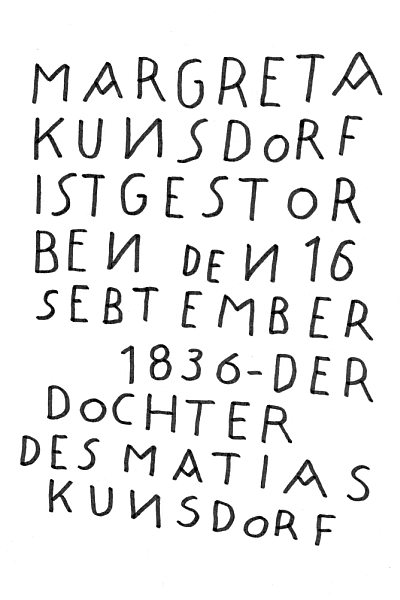 MARGRETA
KUNSDORF
ISTGESTOR
BEN DEN 16
SEBTEMBER
1836-DER
DOCHTER
DES MATIAS
KUNSDORF